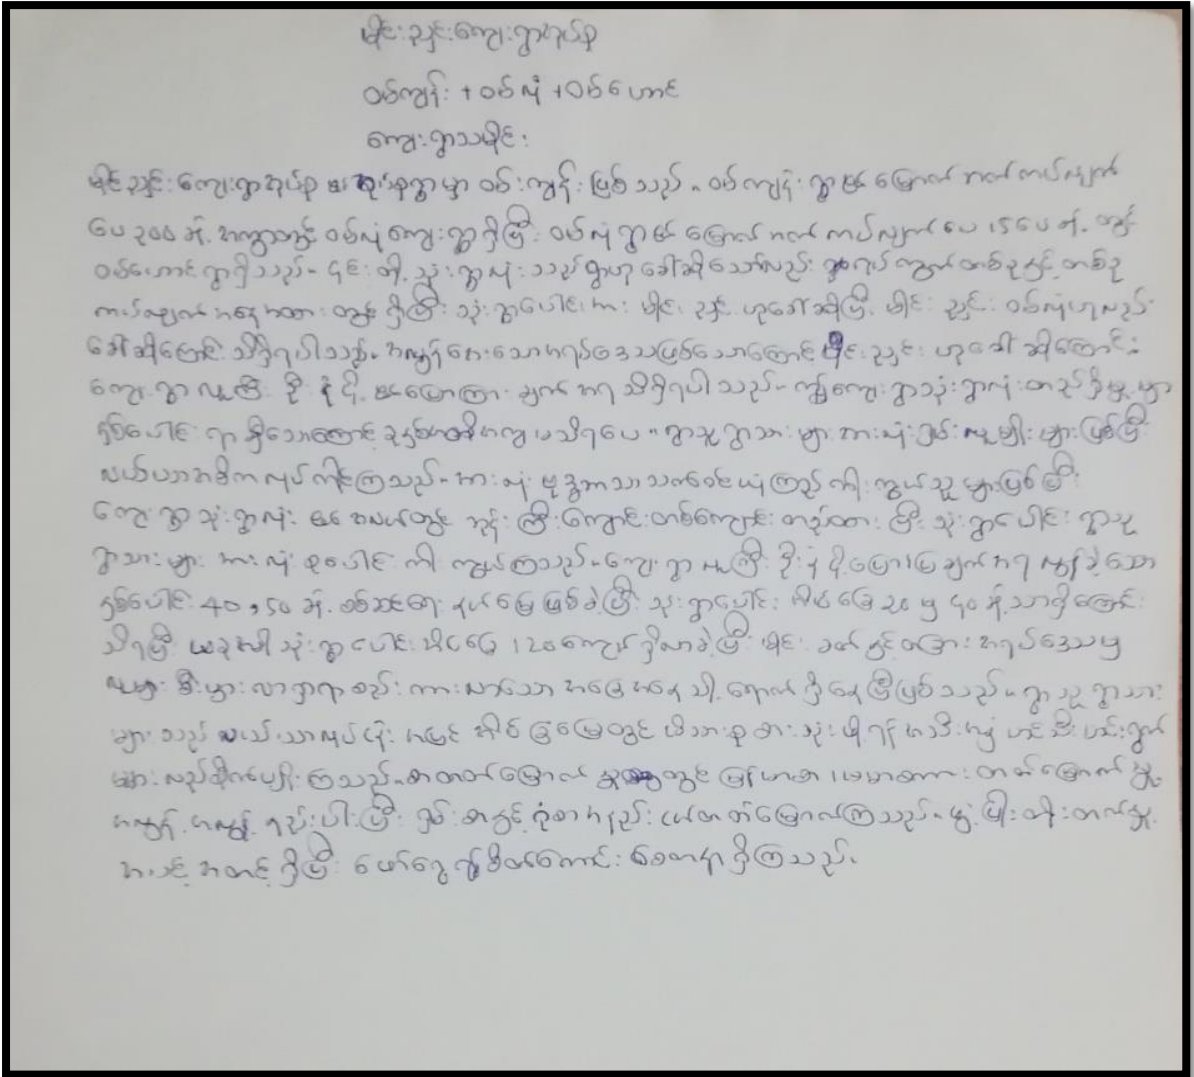 မိုင်းညှင်းကျေးရွာအုပ်စု
ဝမ်ကျန်း + ဝမ်လုံ + ဝမ်ဟောင်
ကျေးရွာသမိုင်း
မိုင်းညှင်းကျေးရွာအုပ်စု ၏ အုပ်စုရွာမှာ ဝမ်းကျန်း ဖြစ်သည်။ ဝမ်ကျန်းရွာ၏ မြောက်ဘက်ကပ်လျက်
ပေ ၃၀၀ ခန့် အကွာတွင် ဝမ်လုံကျေးရွာရှိပြီး ဝမ်လုံရွာ၏ မြောက်ဘက်ကပ်လျက် ပေ ၁၅ ပေခန့် တွင်
ဝမ်ဟောင်ရွာရှိသည်။ ၎င်းတို့ သုံးရွာလုံးသည် ရွာဟုခေါ်ဆိုသော်လည်း ရပ်ကွက်တစ်ခုနှင့်တစ်ခု
ကပ်လျက်အနေအထားတွင်ရှိပြီး သုံးရွာပေါင်းအား မိုင်းညှင်းဟုခေါ်ဆိုပြီး မိုင်းညှင်းဝမ်လုံဟုလည်း
ခေါ်ဆိုကြောင်း သိရှိရပါသည်။ အလွန်ဝေးသောအရပ်ဒေသဖြစ်သောကြောင့် မိုင်းညှင်းဟုခေါ်ဆိုကြောင်း
ကျေးရွာလူကြီး ဦးနုံပို ၏ပြောကြားချက်အရ သိရှိရပါသည်။ ကျေးရွာသုံးရွာလုံးတည်ရှိမှုမှာ
နှစ်ပေါင်းရာရှိသောကြောင့် ခုနှစ်အတိအကျမသိရပေ။ ရွာသူရွာသားများအားလုံးရှမ်းလူမျိုးများဖြစ်ပြီး
လယ်ယာအဓိကလုပ်ကိုင်ကြသည်။ အားလုံး ဗုဒ္ဓဘာသာသက်ဝင်ယုံကြည်ကိုးကွယ်သူများဖြစ်ပြီး
ကျေးရွာသုံးရွာလုံး၏ အလယ်တွင် ဘုန်းကြီးကျောင်းတစ်ကျောင်းတည်ထားပြီး သုံးရွာပေါင်း ရွာသူ
ရွာသားများအားလုံး စုပေါင်းကိုးကွယ်ကြသည်။ ကျေးရွာလူကြီး ဦးနုံပို ပြောပြချက်အရ လွန်ခဲ့သော
နှစ်ပေါင်း 40, 50 ခန့် စစ်ဆင်ရေးနယ်မြေဖြစ်ခဲ့ပြီး သုံးရွာပေါင်း အိမ်ခြေ 20 မှ ၄၀ ခန့်သာရှိကြောင်း
သိရပြီး ယခုအခါ သုံးရွာပေါင်းအိမ်ခြေ 120 ကျော်ရှိလာခဲ့ပြီး မိုင်းခတ်နှင့်တခြားအရပ်ဒေသမှ
လူများစီးပွားလာရှာရာစည်းကားလာသောအခြေအနေသို့ရောက်ရှိနေပြီဖြစ်သည်။ ရွာသူရွာသား
များသည် လယ်ယာလုပ်ငန်းအပြင် အိမ်ခြံမြေတွင် မိသားစုစားသုံးဖို့ရန် အသီးအနှံ ဟင်းသီးဟင်းရွက်
များလည်းစိုက်ပျိုးကြသည်။ စာတတ်မြောက်မှုတွင် မြန်မာစာ၊ ဗမာစကားတတ်မြောက်မှု
အလွန့်အလွန်နည်းပါးပြီး ရှမ်းစာနှင့် ဝုံစာအနည်းငယ်တတ်မြောက်ကြသည်။ ဖွံ့ဖြိုးတိုးတက်မှု
အသင့်အတင့်ရှိပြီး ဖော်ရွေ၍ စိတ်ကောင်းစေတနာရှိကြသည်။